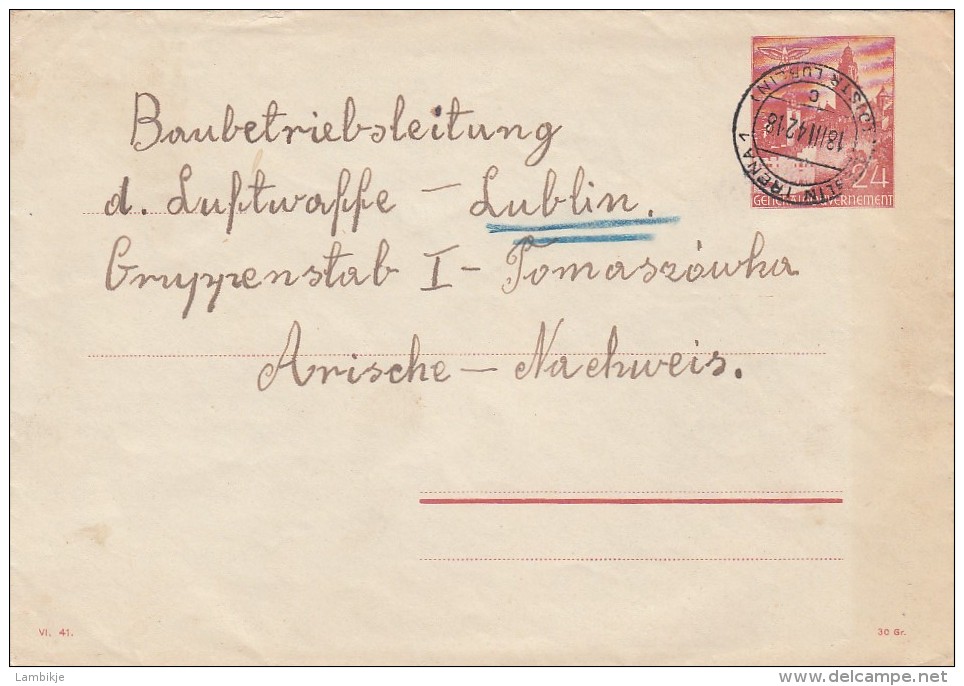 Baubetriebsleitung
d. Luftwaffe – Lublin.
Gruppenstab I – Tomaszówka
Arische – Nachweis.
24
GENERALGOUVERNEMENT
18 III 42 18
C
(DISTR LUBLIN)
VI. 41.
30 Gr.
Lambikje
www.delcampe.net